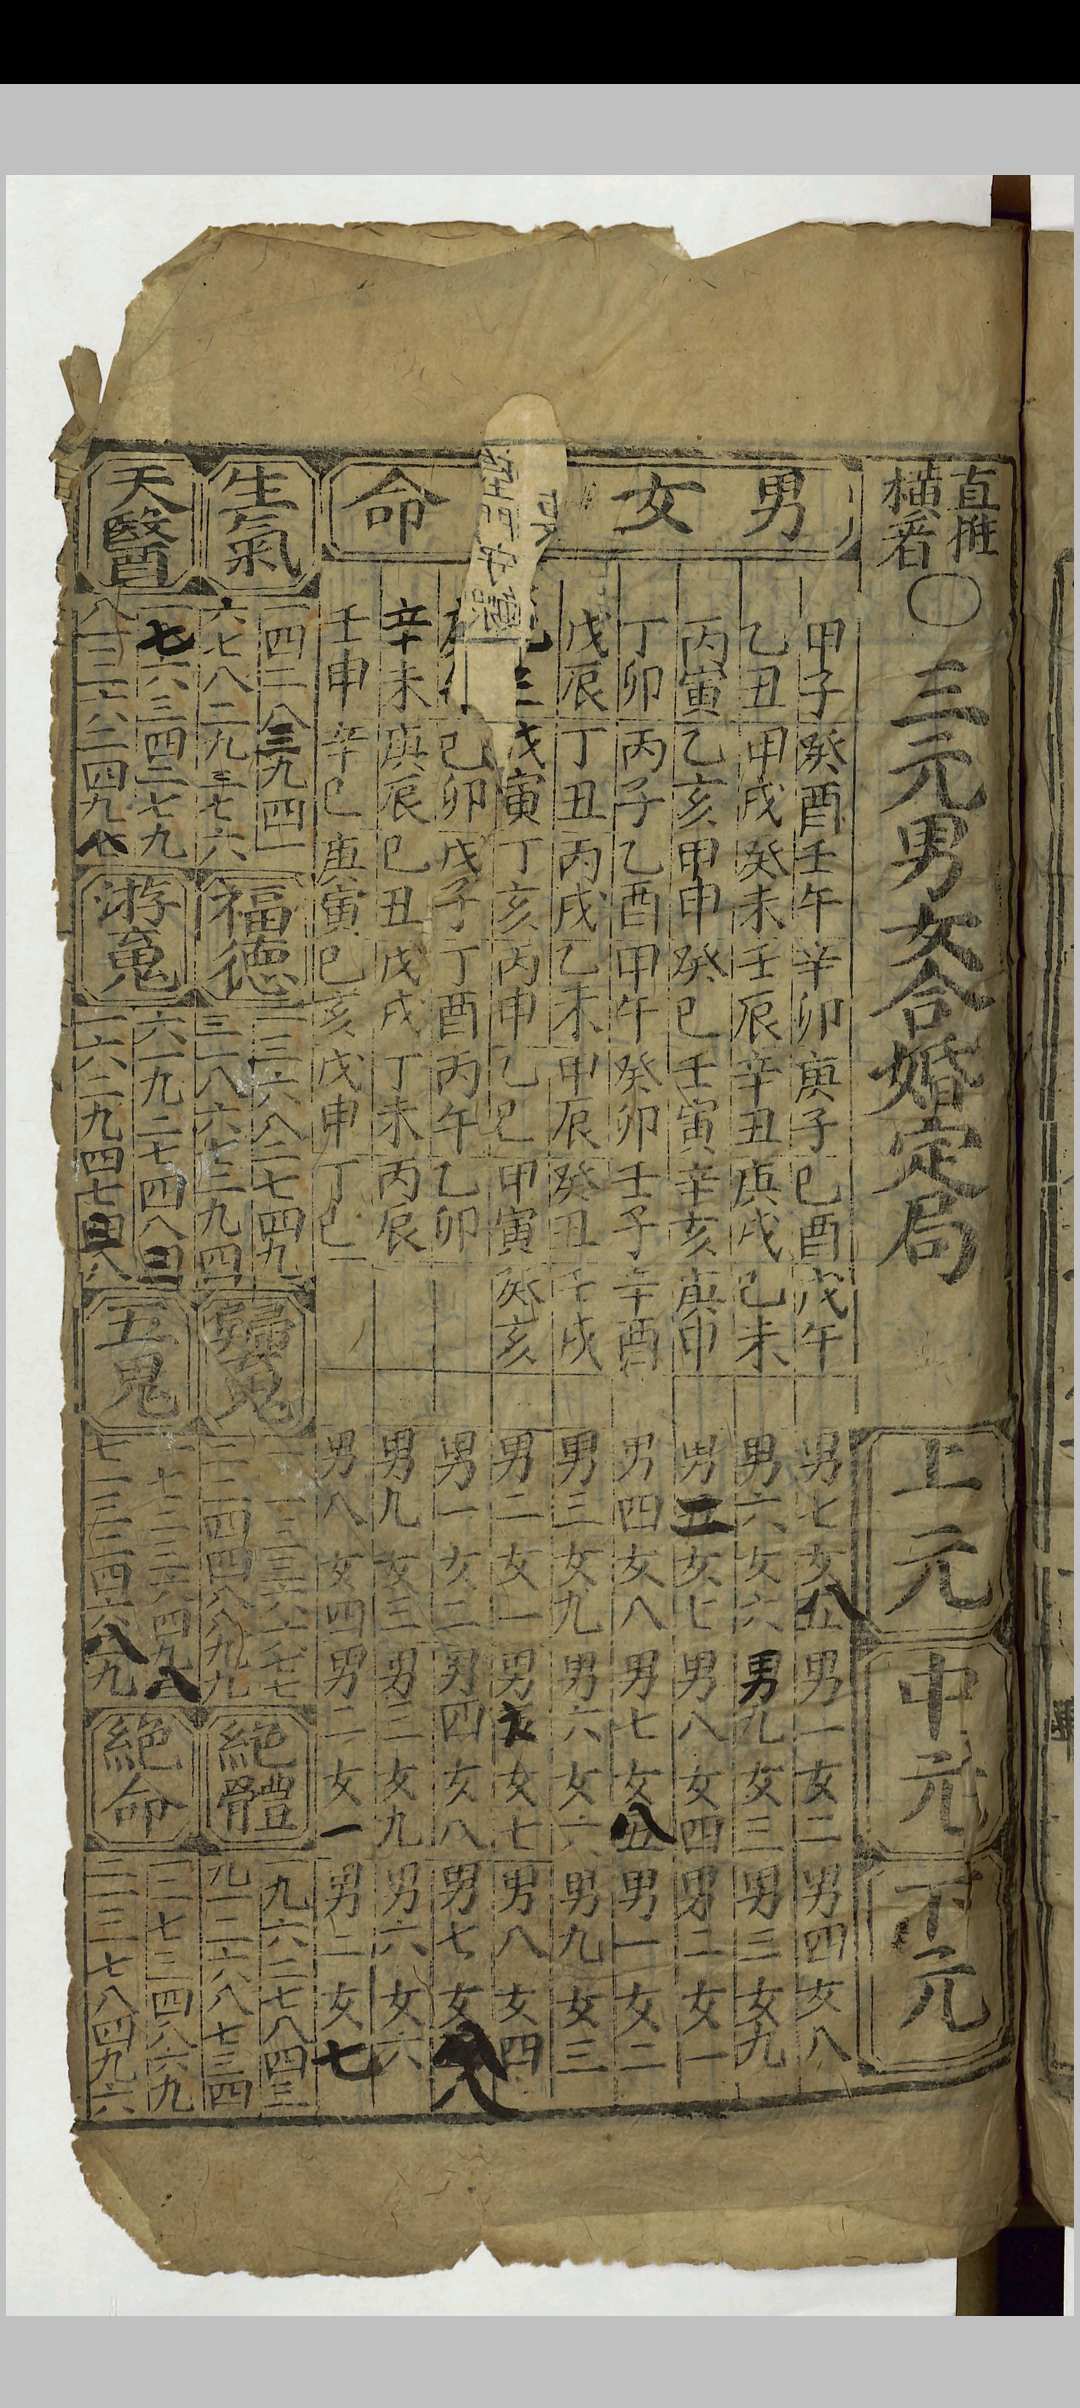 直推
橫看
〇三元男女合婚定局
上元
中元
下元
男女命
甲子癸酉壬午辛卯庚子己酉戊午
男七女五八男一女二男四女八
乙丑甲戌癸未壬辰辛丑庚戌己未
男六女六男九女三男三女九
丙寅乙亥甲申癸巳壬寅辛亥庚申
男五女七男八女四男二女一
丁卯丙子乙酉甲午癸卯壬子辛酉
男四女八男七女八男一女二
戊辰丁丑丙戌乙未甲辰癸丑壬戌
男三女九男六女六男九女三
戊寅丁亥丙申乙巳甲寅癸亥
男二女一男五女七男八女四
己卯戊子丁酉丙午乙卯
男一女二男四女八男七女八
辛未庚辰己丑戊戌丁未丙辰
男九女三男三女九男六女六
壬申辛巳庚寅己亥戊申丁巳
男八女四男二女一男二女七
生氣
一四二八三九四一
六七八二九三七六
福德
一三六八二七四九
三一八六七三九四
歸魂
一一三三六六七七
二二四四八八九九
絕體
一九六二七八四三
九一二六八七三四
天醫
一七六三四二七九
八三一六八二四九七
游魂
六一九二七四八三
一六二九四七三八
五鬼
一七二三六四九八
七一三二四六八九
絕命
一二七三四八六九
二一三七八四九六